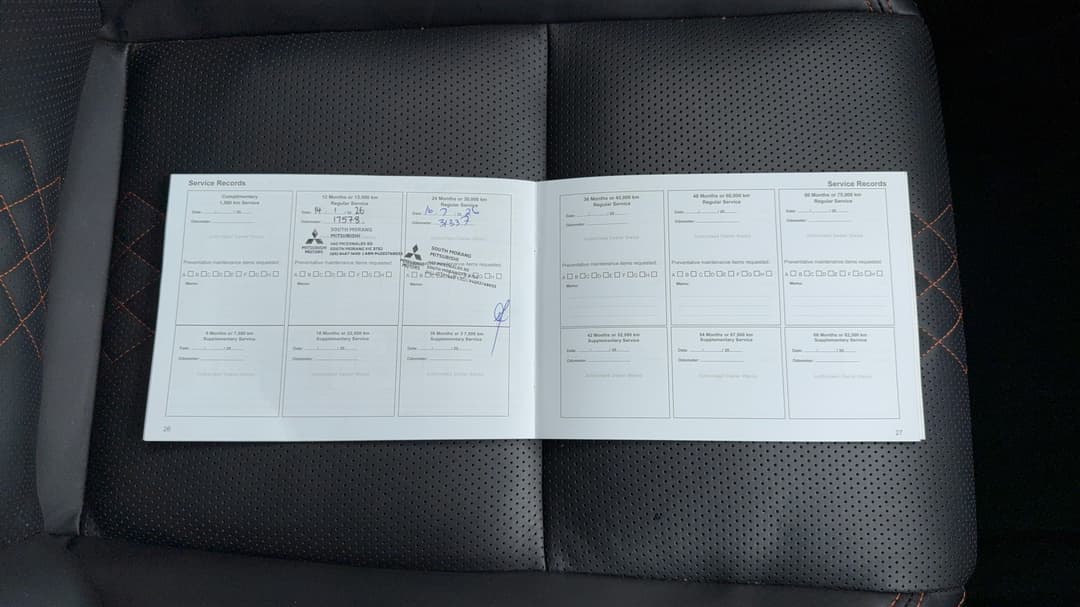 Service Records
Complimentary
1,500 km Service
Date: / / 20
Authorised Dealer Stamp
Preventative maintenance items requested:
A B C D E F G H
Memo:
12 Months or 15,000 km
Regular Service
Date: 14 1 26
Odometer: 17578
MITSUBISHI
MOTORS
SOUTH MORANG
MITSUBISHI
Preventative maintenance items requested:
A B C D E F G H
Memo:
24 Months or 30,000 km
Regular Service
Date: 16 7 20 26
Odometer: 31337
Authorised Dealer Stamp
MOTORS
SOUTH MORANG
MITSUBISHI
Memo:
6 Months or 7,500 km
Supplementary Service
Date: / / 20
Odometer:
Authorised Dealer Stamp
18 Months or 22,500 km
Supplementary Service
Date: / / 20
Odometer:
Authorised Dealer Stamp
Supplementary Service
Date: / / 20
Odometer:
Authorised Dealer Stamp
26
Service Records
36 Months or 45,000 km
Regular Service
Date: / / 20
Odometer:
Authorised Dealer Stamp
Preventative maintenance items requested:
A B C D E F G H
Memo:
48 Months or 60,000 km
Regular Service
Date: / / 20
Odometer:
Authorised Dealer Stamp
Preventative maintenance items requested:
A B C D E F G H
Memo:
60 Months or 75,000 km
Regular Service
Date: / / 20
Odometer:
Authorised Dealer Stamp
Preventative maintenance items requested:
A B C D E F G H
Memo:
42 Months or 52,500 km
Supplementary Service
Date: / / 20
Odometer:
Authorised Dealer Stamp
54 Months or 67,500 km
Supplementary Service
Date: / / 20
Odometer:
Authorised Dealer Stamp
66 Months or 82,500 km
Supplementary Service
Date: / / 20
Odometer:
Authorised Dealer Stamp
27